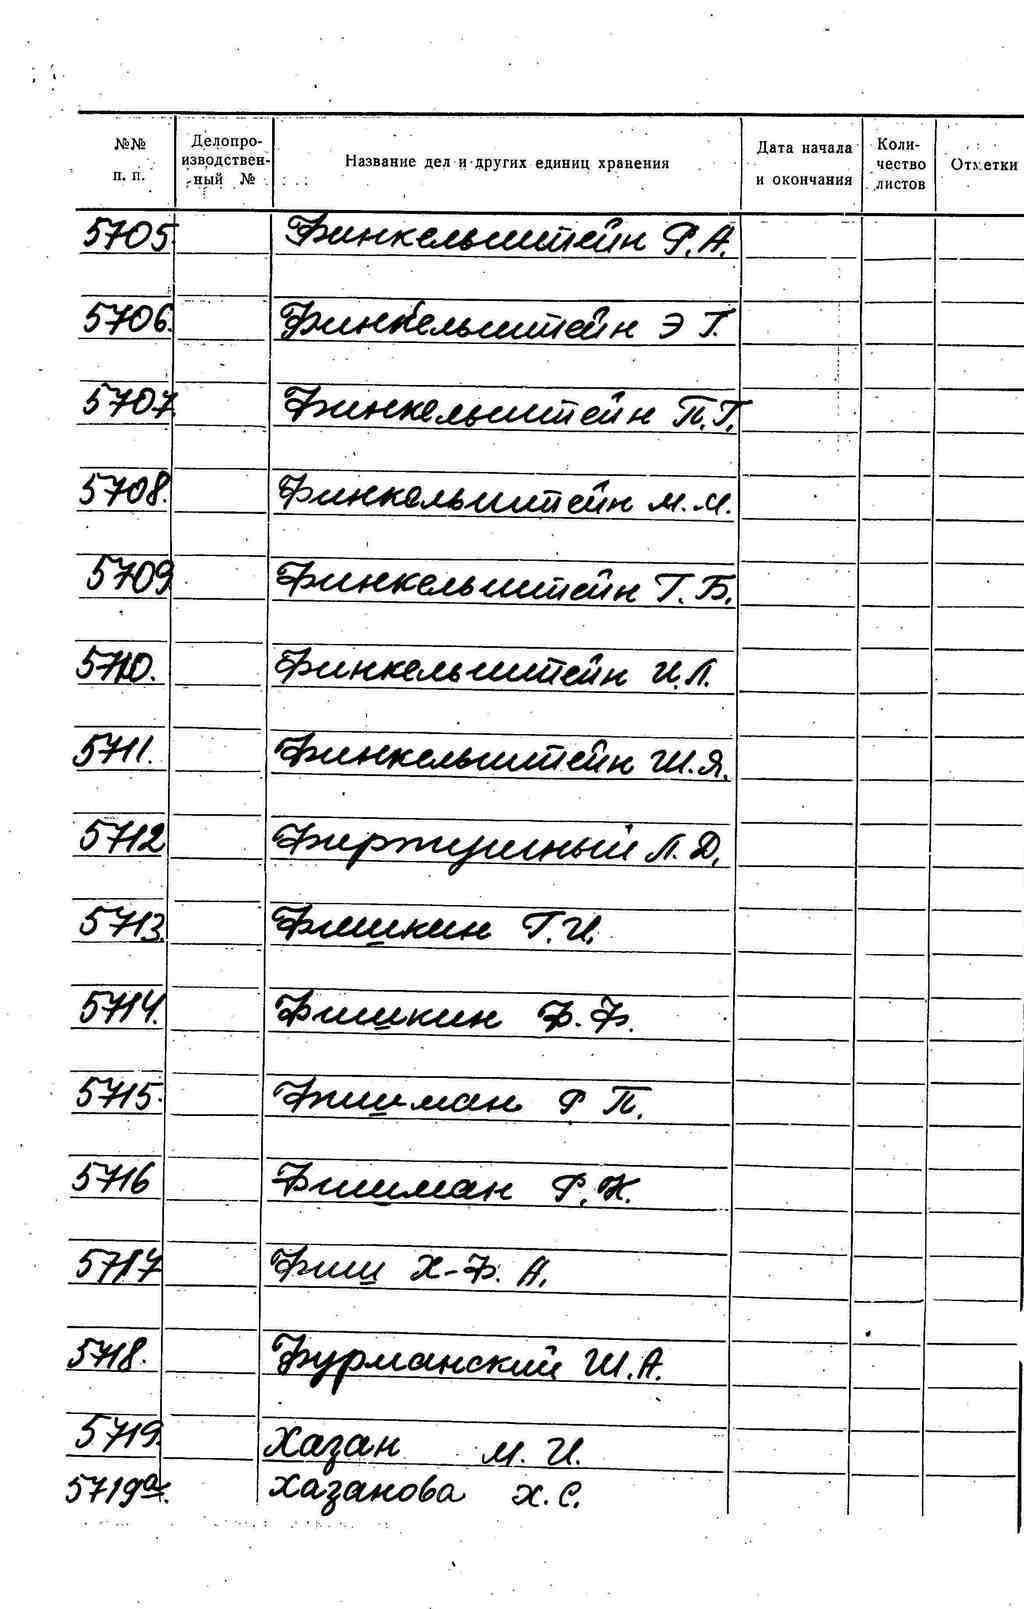 №№ п. п. Делопроизводственный № Название дел и других единиц хранения Дата начала и окончания Количество листов Отметки
5705. Финкельштейн Р.А.
5706. Финкельштейн Э Г.
5707. Финкельштейн П.Г.
5708. Финкельштейн М.М.
5709. Финкельштейн Г.Б.
5710. Финкельштейн И.Л.
5711. Финкельштейн Ш.Я.
5712 Л.Д.
5713. Фишкин Г.И.
5714. Фишкин Ф.Ф.
5715. Фишман Р П.
5716 Фишман Р.К.
5717 Фиш Х-Ф. А.
5718. Фурманский Ш.А.
5719. Хазан М. И.
5719а. Хазанова Х.С.